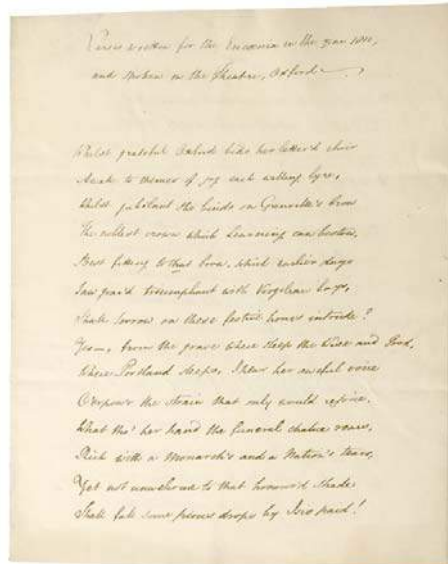 Verses written for the Encænia in the year 1810,
and spoken in the Theatre, Oxford
Whilst grateful Oxford bids her letter'd choir
Awake to themes of joy each willing lyre,
Whilst jubilant she binds on Grenville's brow
The noblest crown which Learning can bestow,
Best fitting that brow, which earlier days
Saw grac'd triumphant with Virgilian bays,
Shall sorrow on these festive hours intrude?
Yes, from the grave where sleep the Wise and Good,
Where Portland sleeps, I hear her awful voice
O'erpow'r the strain that only would rejoice.
What tho' her hand the funeral chalice rears,
Rich with a Monarch's and a Nation's tears,
Yet not unwelcome to that honour'd shade
Shall fall some pious drops by Isis paid!